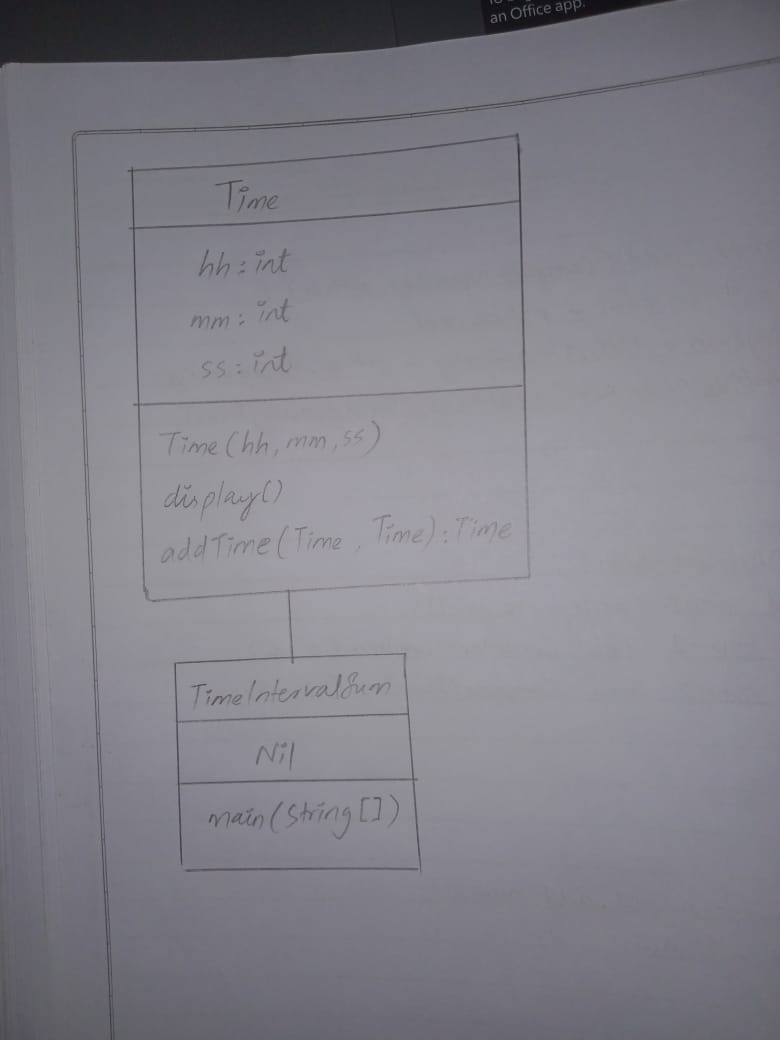 an Office app.
Time
hh : int
mm : int
ss : int
Time (hh, mm, ss)
display()
addTime (Time , Time) : Time
TimeIntervalSum
Nil
main (String [])